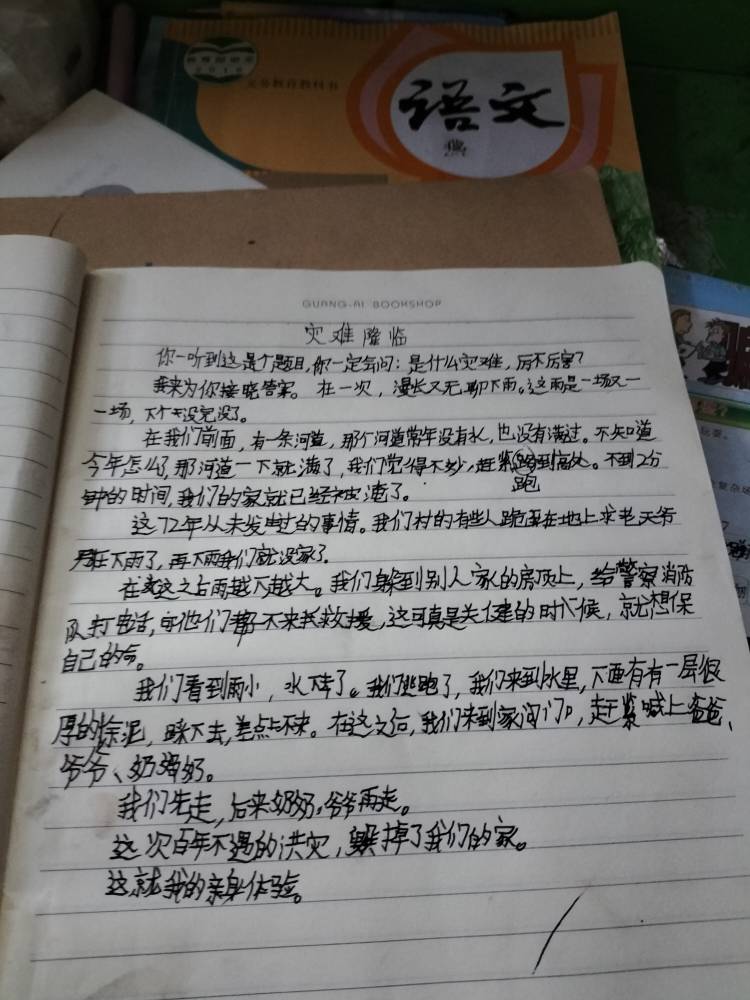 义务教育教科书
语文
GUANG-AI BOOKSHOP
灾难降临
你一听到这是个题目,你一定会问:是什么灾难,厉不厉害?
我来为你接晓答案。在一次,漫长又无聊下雨。这雨是一场又一
一场,下个没完没了。
在我们前面,有一条河道,那个河道常年没有水,也没有满过。不知道
今年怎么了,那河道一下就满了,我们觉得不妙,赶紧跑到高处。不到2分
钟的时间,我们的家就已经被淹了。
这72年从未发生过的事情。我们村的有些人跪在地上求老天爷
别在下雨了,再下雨我们就没家了。
在这之后雨越下越大。我们躲到别人家的房顶上,给警察消防
队打电话,可他们都不来救援,这可真是关键的时候,就想保
自己的命。
我们看到雨小,水下降了。我们逃跑了,我们来到水里,下面有有一层很
厚的淤泥,踩下去,差点上不来。在这之后,我们来到家门口,赶紧喊上爸爸、
爷爷、奶奶。
我们先走,后来奶奶,爷爷再走。
这次百年不遇的洪灾,毁掉了我们的家。
这就我的亲身体验。